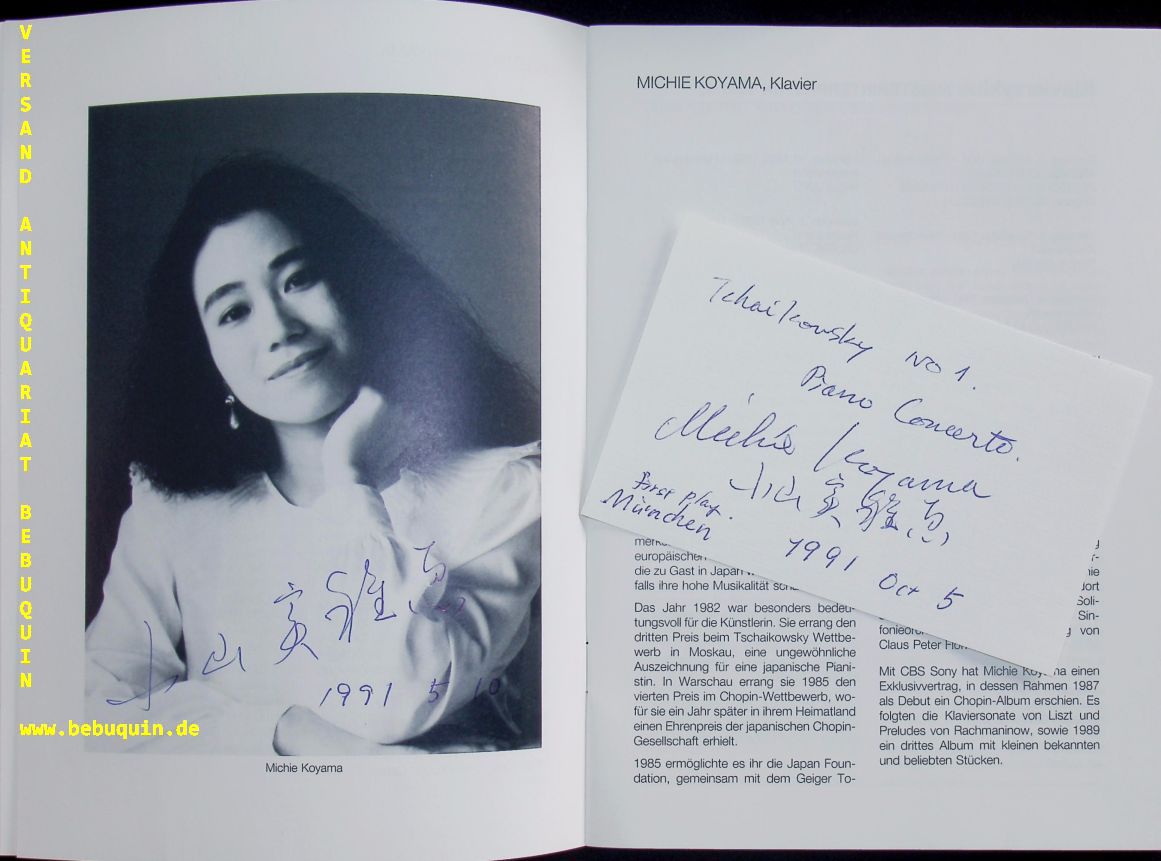 VERSAND ANTIQUARIAT BEBUQUIN
www.bebuquin.de
小山実稚恵
1991 5 10
Michie Koyama
MICHIE KOYAMA, Klavier
Tchaikovsky No 1.
Piano Concerto.
Michie Koyama
小山実稚恵
first play.
München
1991 Oct 5
europäischen
die zu Gast in Japan
falls ihre hohe Musikalität
Das Jahr 1982 war besonders bedeu-
tungsvoll für die Künstlerin. Sie errang den
dritten Preis beim Tschaikowsky Wettbe-
werb in Moskau, eine ungewöhnliche
Auszeichnung für eine japanische Piani-
stin. In Warschau errang sie 1985 den
vierten Preis im Chopin-Wettbewerb, wo-
für sie ein Jahr später in ihrem Heimatland
einen Ehrenpreis der japanischen Chopin-
Gesellschaft erhielt.
1985 ermöglichte es ihr die Japan Foun-
dation, gemeinsam mit dem Geiger To-
Soli-
Sin-
von
Claus Peter
Mit CBS Sony hat Michie Koyama einen
Exklusivvertrag, in dessen Rahmen 1987
als Debut ein Chopin-Album erschien. Es
folgten die Klaviersonate von Liszt und
Preludes von Rachmaninow, sowie 1989
ein drittes Album mit kleinen bekannten
und beliebten Stücken.